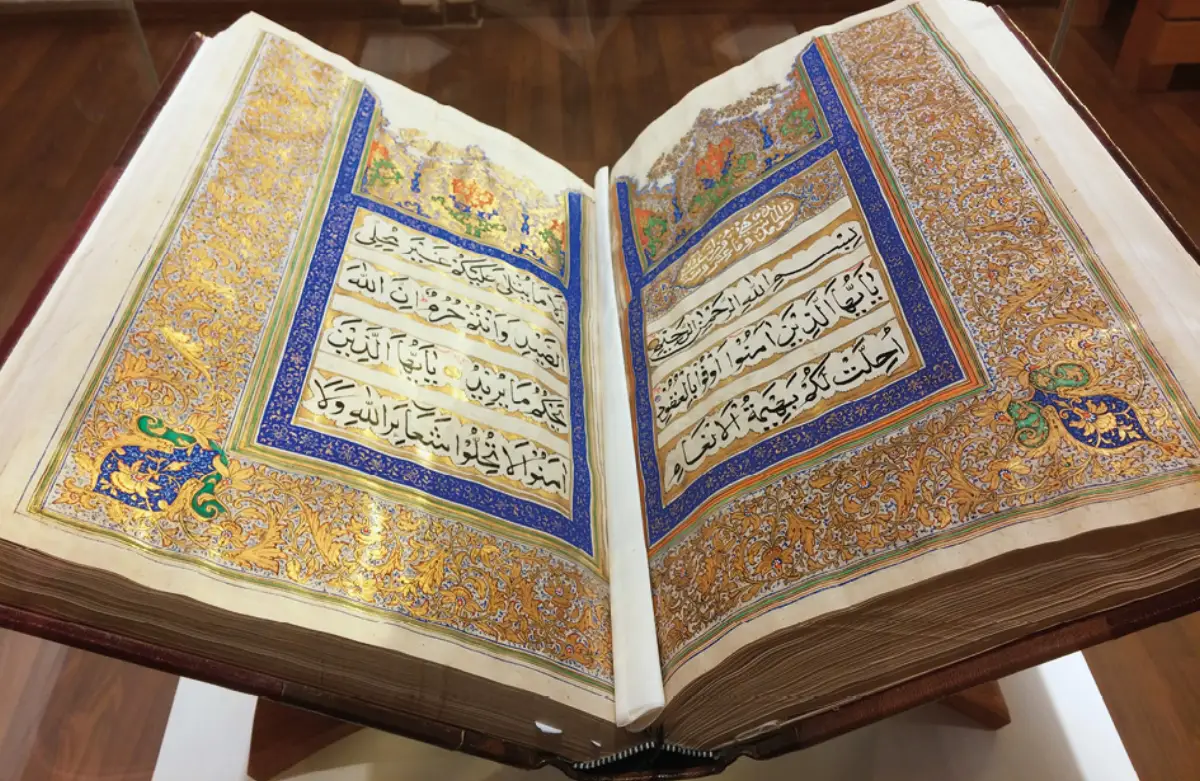 بِسْمِ اللهِ الرَّحْمٰنِ الرَّحِيمِ
يَٓا اَيُّهَا الَّذِينَ اٰمَنُوا اَوْفُوا بِالْعُقُودِ
اُحِلَّتْ لَكُمْ بَهِيمَةُ الْاَنْعَامِ
اِلَّا مَا يُتْلٰى عَلَيْكُمْ غَيْرَ مُحِلِّى
الصَّيْدِ وَاَنْتُمْ حُرُمٌ اِنَّ اللهَ
يَحْكُمُ مَا يُرِيدُ يَٓا اَيُّهَا الَّذِينَ
اٰمَنُوا لَا تُحِلُّوا شَعَٓائِرَ اللهِ وَلَا